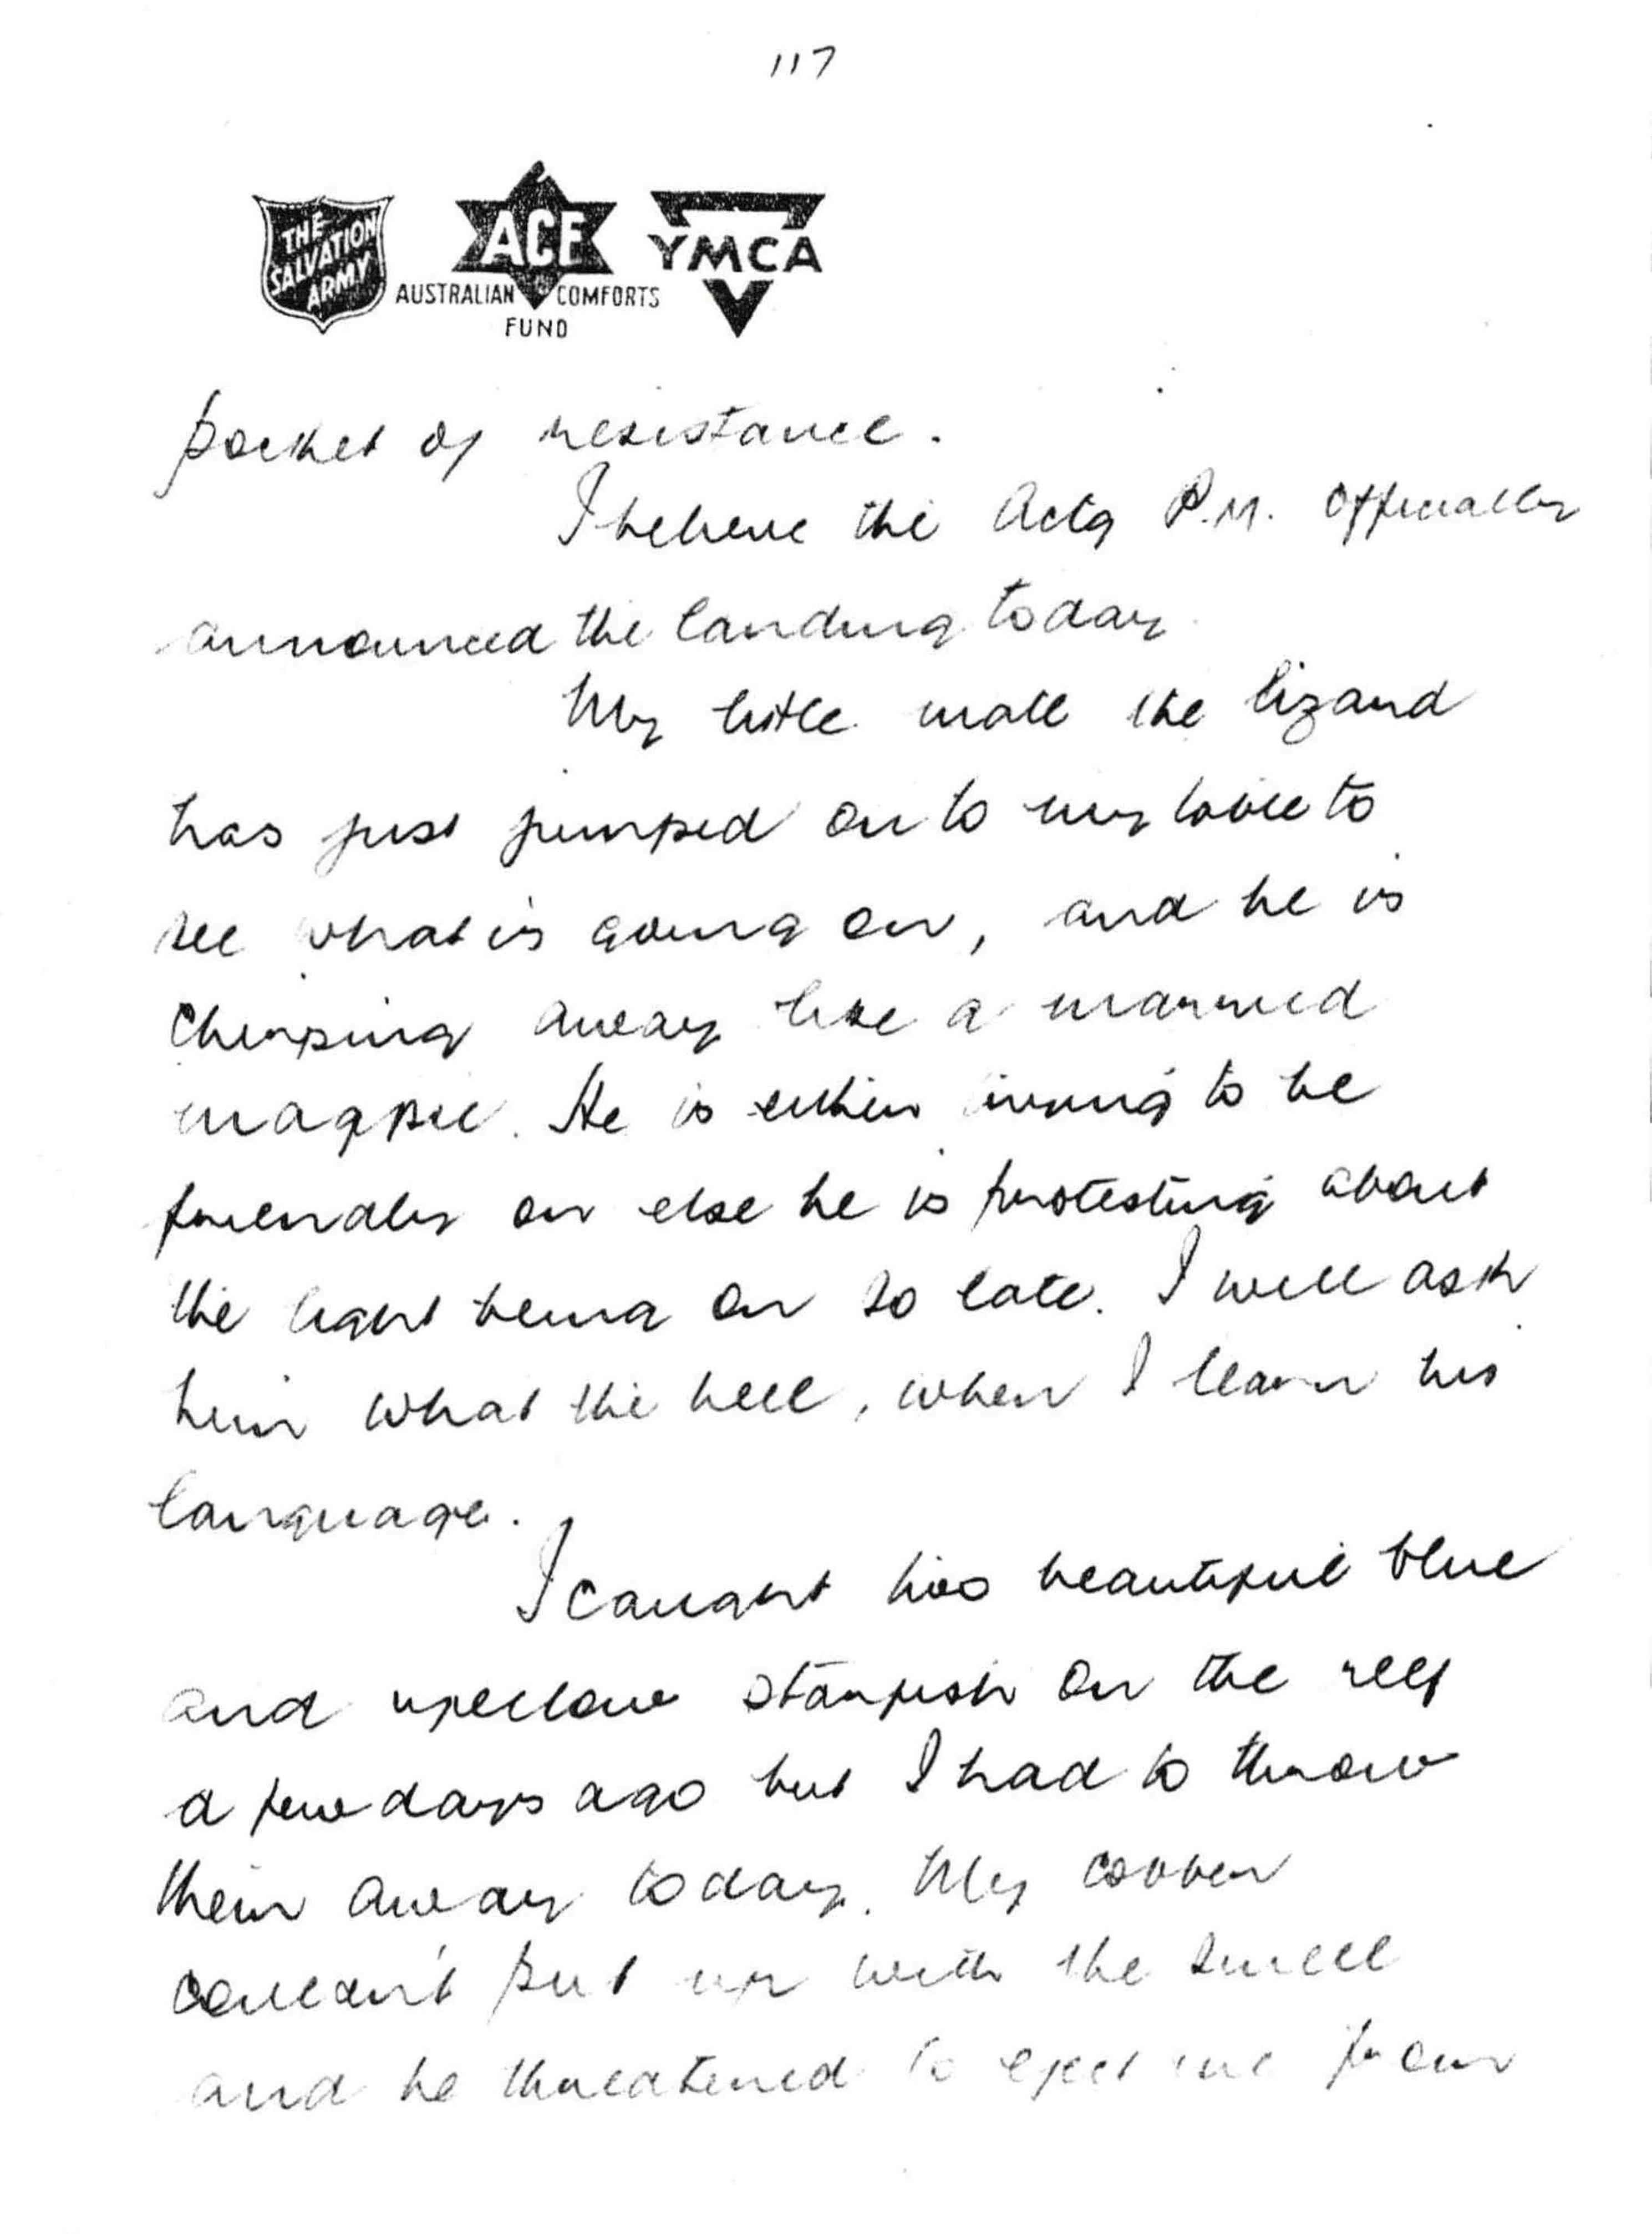 117
THE SALVATION ARMY
ACF
AUSTRALIAN COMFORTS FUND
YMCA
pocket of resistance.
I believe the Actg P.M. officially
announced the landing today.
My little mate the lizard
has just jumped on to my table to
see what is going on, and he is
chirping away like a married
magpie. He is either trying to be
friendly or else he is protesting about
the light being on so late. I will ask
him what the hell, when I learn his
language.
I caught two beautiful blue
and yellow starfish on the reef
a few days ago but I had to throw
them away today. My cobber
couldn't put up with the smell
and he threatened to eject me from